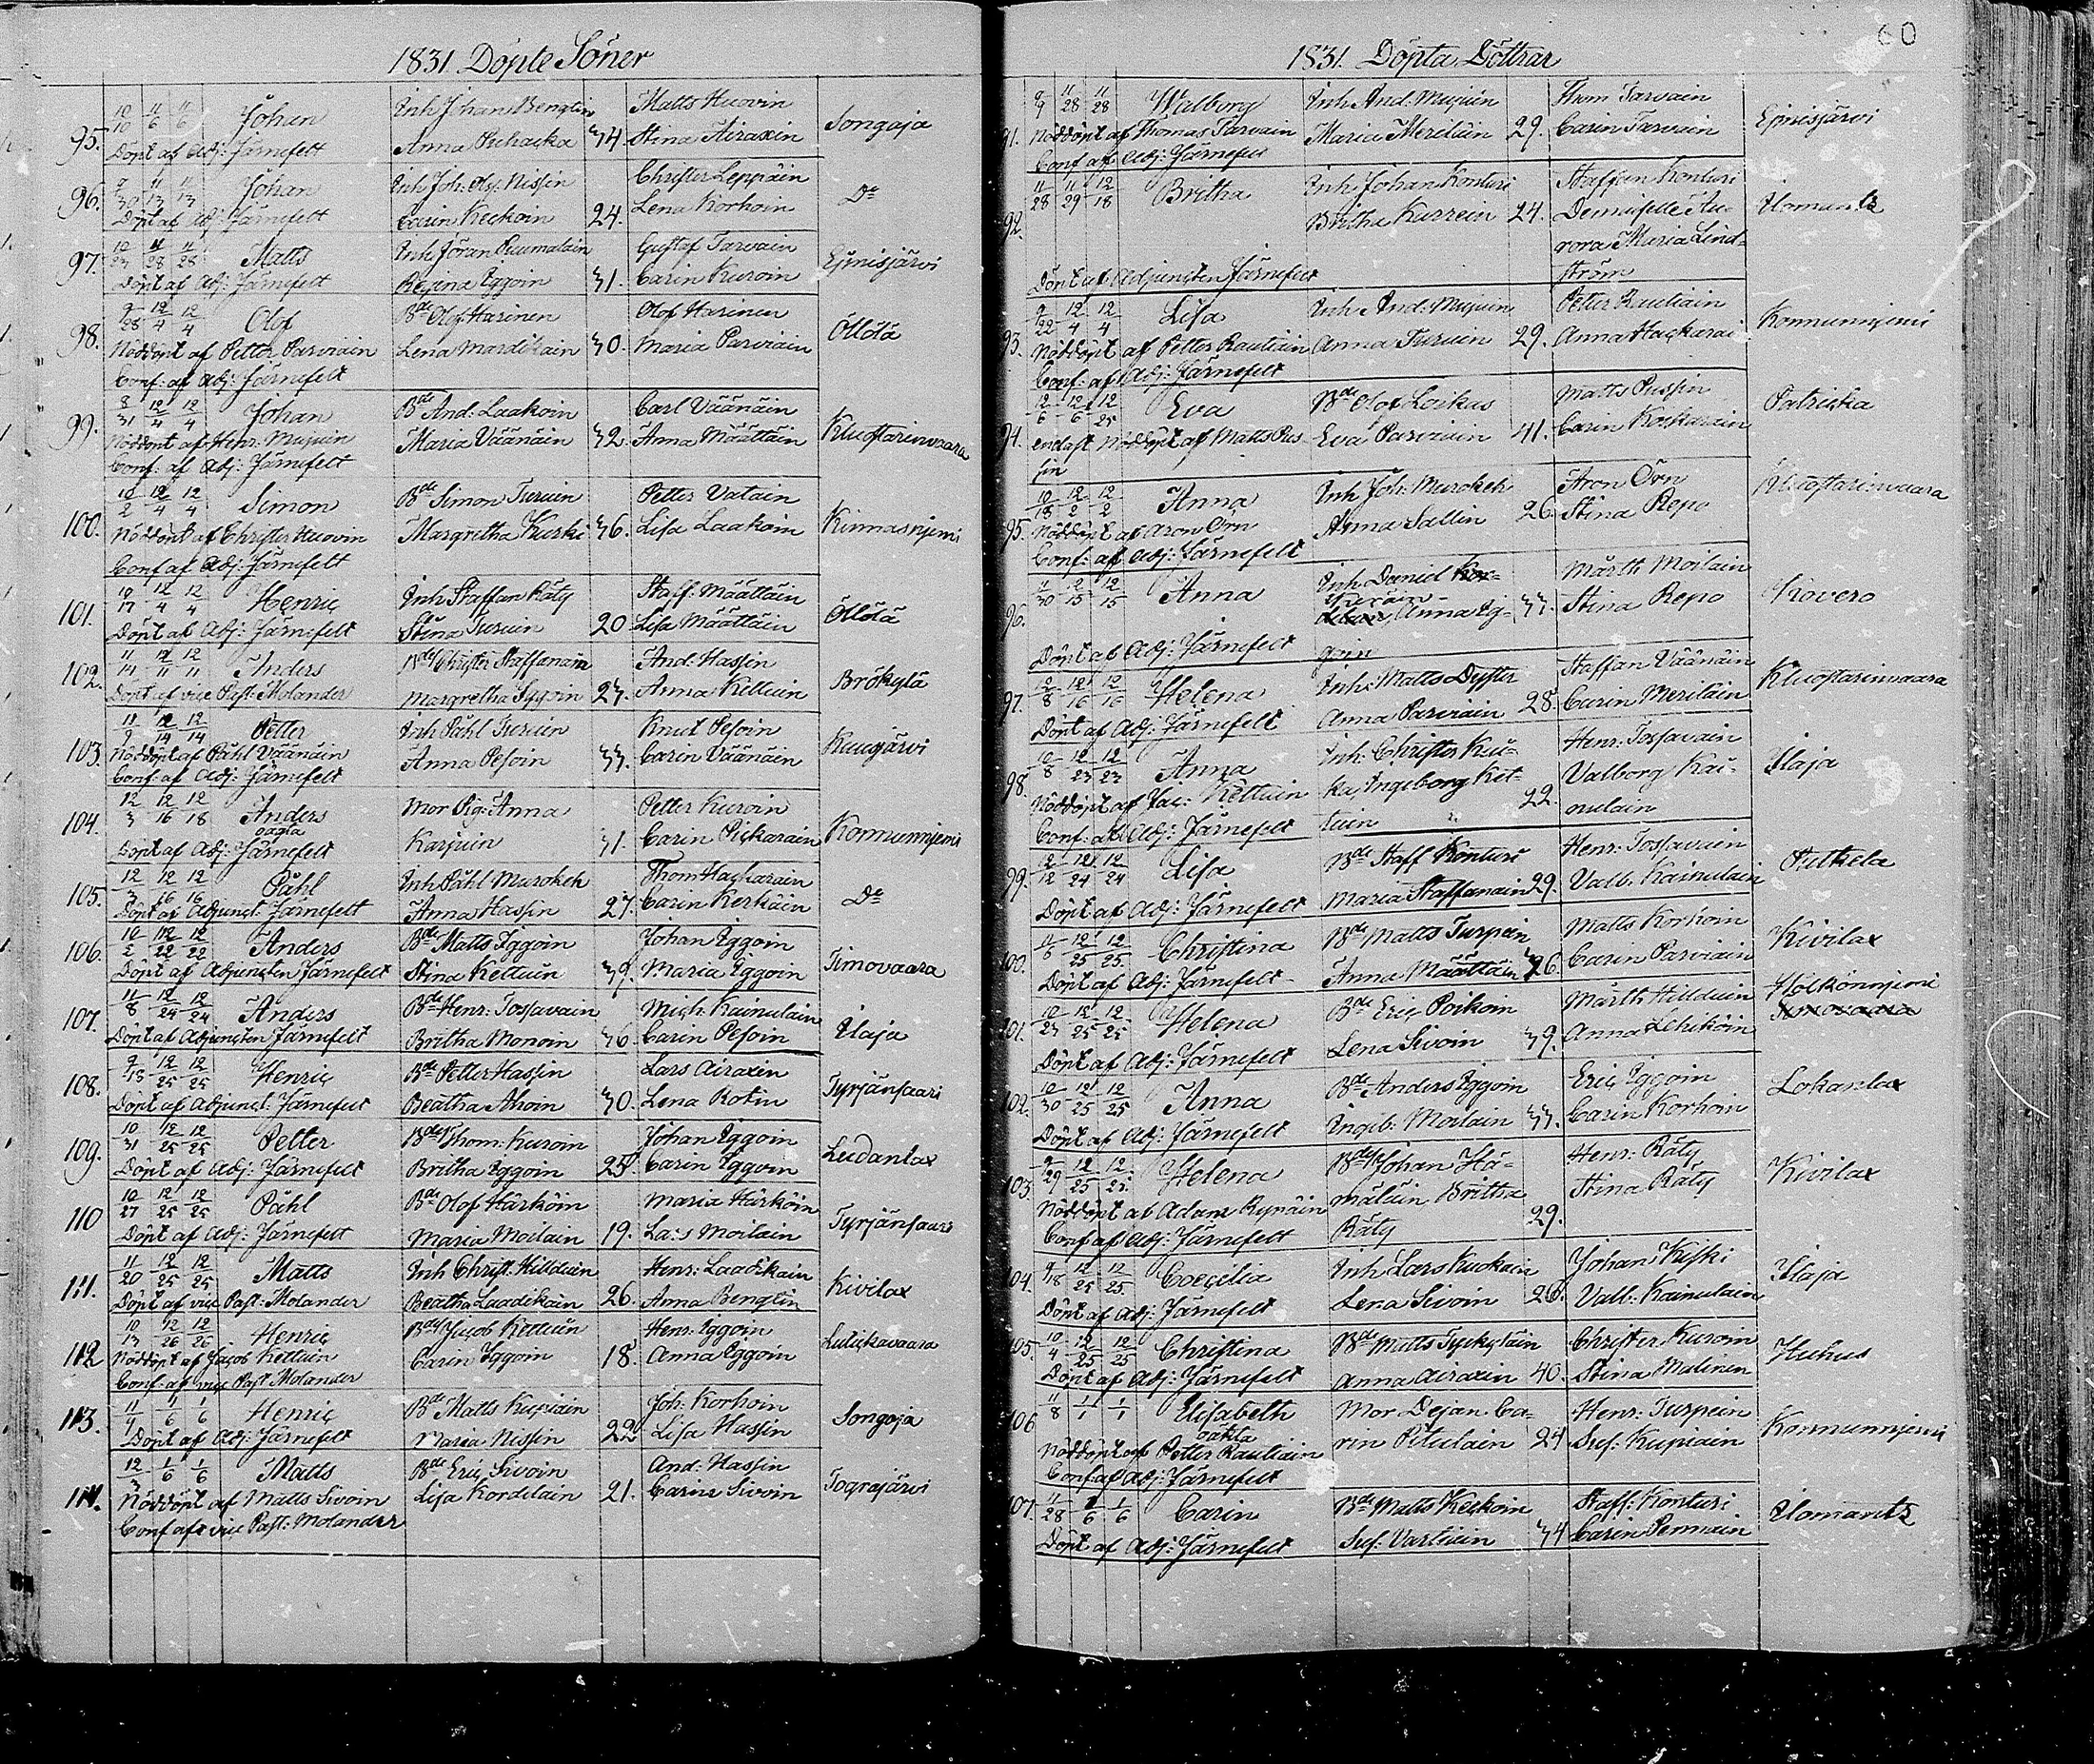 1831 Döpte Söner
95. 10/10 11/6 11/6 Johan Inh Johan Bengtin Matts Huovin Songaja
Anna Puhacka 34 Stina Airaxin
Döpt af Adj: Järnefelt
96. 9/30 11/13 11/13 Johan Inh Joh: Ols: Nissin Christer Leppäin Do
Carin Keckoin 24. Lena Korhoin
Döpt af Adj: Järnefelt
97. 10/23 11/28 11/28 Matts Inh Jöran Puumalain Gustaf Tarvain Ejmisjärvi
Döpt af Adj: Järnefelt Regina Eggoin 31. Carin Kuroin
98. 9/28 12/4 12/4 Olof Bde Olof Harinen Olof Harinen Öllölä
Nöddöpt af Petter Parviain Lena Mardikain 30. Maria Parviain
Conf: af Adj: Järnefelt
99. 8/31 12/4 12/4 Johan Bde And: Laakoin Carl Väänäin Kluostarinvaara
Nöddöpt af Henr: Mujuin Maria Väänäin 32. Anna Määttäin
Conf: af Adj: Järnefelt
100. 10/2 12/4 12/4 Simon Bde Simon Turuin Petter Vatain Kinnasnjemi
Nöddöpt af Christer Huovin Margretha Kurki 36. Lisa Laakoin
Conf af Adj: Järnefelt
101. 10/17 12/4 12/4 Henric Inh Staffan Räty Staff: Määttäin Öllölä
Döpt af Adj: Järnefelt Stina Turuin 20 Lisa Määttäin
102. 11/14 12/11 12/11 Anders Bde Christer Staffanain And: Hassin Brökylä
Döpt af vice Past: Molander Margretha Iggoin 23. Anna Kettuin
103. 11/9 12/14 12/14 Petter Inh Påhl Turuin Knut Pesoin Kuugjärvi
Nöddöpt af Påhl Väänäin Anna Pesoin 33. Carin Väänäin
Conf: af Adj: Järnefelt
104. 12/3 12/16 12/18 Anders Mor Pig: Anna Petter Kuroin Konnunnjemi
oägta
Döpt af Adj: Järnefelt Karjuin 31. Carin Pickarain
105. 12/3 12/16 12/16 Påhl Inh Påhl Murokeh Thom Hackarain Do
Döpt af Adjunct: Järnefelt Anna Hassin 27. Carin Kerkäin
106. 10/2 12/22 12/22 Anders Bde Matts Iggoin Johan Iggoin Timovaara
Döpt af Adjuncten Järnefelt Stina Kettuin 39. Maria Eggoin
107. 11/8 12/24 12/24 Anders Bde Henr: Tossavain Mich: Kainulain Ilaja
Döpt af Adjuncten Järnefelt Britha Monoin 36 Carin Pesoin
108. 9/15 12/25 12/25 Henric Bde Petter Hassin Lars Airaxin Tyrjänsaari
Döpt af Adjunct: Järnefelt Beatha Ahoin 30. Lena Rotin
109. 10/31 12/25 12/25 Petter Bde Thom: Kuroin Johan Eggoin Ludanlax
Döpt af Adj: Järnefelt Britha Eggoin 25. Carin Eggoin
110 10/27 12/25 12/25 Påhl Bde Olof Härköin Maria Härköin Tyrjänsaari
Döpt af Adj: Järnefelt Maria Moilain 19. La:s Moilain
111. 11/20 12/25 12/25 Matts Inh Christ: Hilduin Henr: Laadikain Kivilax
Döpt af vice Past: Molander Beatha Laadikain 26. Anna Bengtin
112 10/13 12/26 12/26 Henric Bde Jacob Kettuin Henr: Eggoin Lutickavaara
Nöddöpt af Jacob Kettuin Carin Eggoin 18. Anna Eggoin
Conf: af vice Past Molander
113. 11/4 1/6 1/6 Henric Bde Matts Kupiain Joh: Korhoin Songaja
Döpt af Adj: Järnefelt Maria Nissin 22 Lisa Hassin
114. 12/3 1/6 1/6 Matts Bde Eric Sivoin And: Hassin Tograjärvi
Nöddöpt af Matts Sivoin Lisa Kordelain 21. Carin Sivoin
Conf af vice Past: Molander
60
1831. Döpta Döttrar
91. 9/9 11/28 11/28 Walborg Inh And: Mujuin Thom Tarvain Ejmisjärvi
Nöddöpt af Thomas Tarvain Maria Meriläin 29. Carin Tarvain
Conf af Adj: Järnefelt
92. 11/28 11/29 12/18 Britha Inh Johan Konturi Staffan Konturi Ilomants
Britha Kurrein 24. Demoiselle Au-
rora Maria Lind-
Döpt af Adjuncten Järnefelt ström
93. 9/22 12/4 12/4 Lisa Inh And: Mujuin Petter Rautiain Konnunnjemi
Nöddöpt af Petter Rautiain Anna Turuin 29. Anna Hackarai
Conf: af Adj: Järnefelt
94. 12/6 12/6 12/25 Eva Bde Olof Loikas Matts Pussin Patricka
endast Nöddöpt af Matts Pus Eva Parviain 41. Carin Kockarain
sin
95. 10/18 12/2 12/2 Anna Inh Joh: Murokeh Aron Örn Kluostarinvaara
Nöddöpt af Aron Örn Anna Sallin 26. Stina Repo
Conf: af Adj: Järnefelt
96. 11/30 12/15 12/15 Anna Inh Daniel Märth Moilain Kovero
Anna Ig- 33. Stina Repo
Döpt af Adj: Järnefelt goin
97. 9/8 12/16 12/16 Helena Inh: Matts Dyster Staffan Väänäin Kluostarinvaara
Döpt af Adj: Järnefelt Anna Parviain 28. Carin Meriläin
98. 10/8 12/23 12/23 Anna Inh: Christer Ku
Henr: Tossavain Ilaja
Nöddöpt af Jac: Kettuin ka, Ingeborg Ket- 22. Valborg Kai-
Conf: af Adj: Järnefelt tuin nulain
99. 12/12 12/24 12/24 Lisa Bde Staff Konturi Henr: Tossavain Putkela
Döpt af Adj: Järnefelt Maria Staffanain 29. Valb. Kainulain
100. 11/6 12/25 12/25 Christina Bde Matts Turpein Matts Korhoin Kivilax
Döpt af Adj: Järnefelt Anna Määttäin 26. Carin Parviain
101. 10/23 12/25 12/25 Helena Bde Eric Poikoin Märth Hilduin Holkönnjemi
Döpt af Adj: Järnefelt Lena Sivoin 39. Anna Lehikoin
102. 10/30 12/25 12/25 Anna Bde Anders Eggoin Eric Eggoin Lokanlax
Döpt af Adj: Järnefelt Ingeb: Moilain 33. Carin Korhoin
103. 9/29 12/25 12/25 Helena Bde Johan Hä- Henr: Räty Kivilax
mäläin Britha Stina Räty
Nöddöpt af Adam Rynäin 29.
Conf af Adj: Järnefelt Räty
104. 9/18 12/25 12/25. Coecilia Inh Lars Kuokain Johan Kiski Ilaja
Döpt af Adj: Järnefelt Lena Sivoin 26. Valb: Kainulain
105. 10/4 12/25 12/25 Christina Bde Matts Tyckyläin Christer Kuroin Huhus
Döpt af Adj: Järnefelt Anna Airaxin 40. Stina Malinen
106 11/8 1/1 1/1 Elisabeth Mor Dejan Ca- Henr: Turpein Konnunnjemi
oäkta rin Pitulain 24 Sus: Kupiain
Nöddöpt af Petter Rautiain
Conf: af Adj: Järnefelt
107. 11/28 1/6 1/6 Carin Bde Matts Keckoin Staff: Konturi Ilomants
Döpt af Adj: Järnefelt Sus: Vartiain 34 Carin Pennain